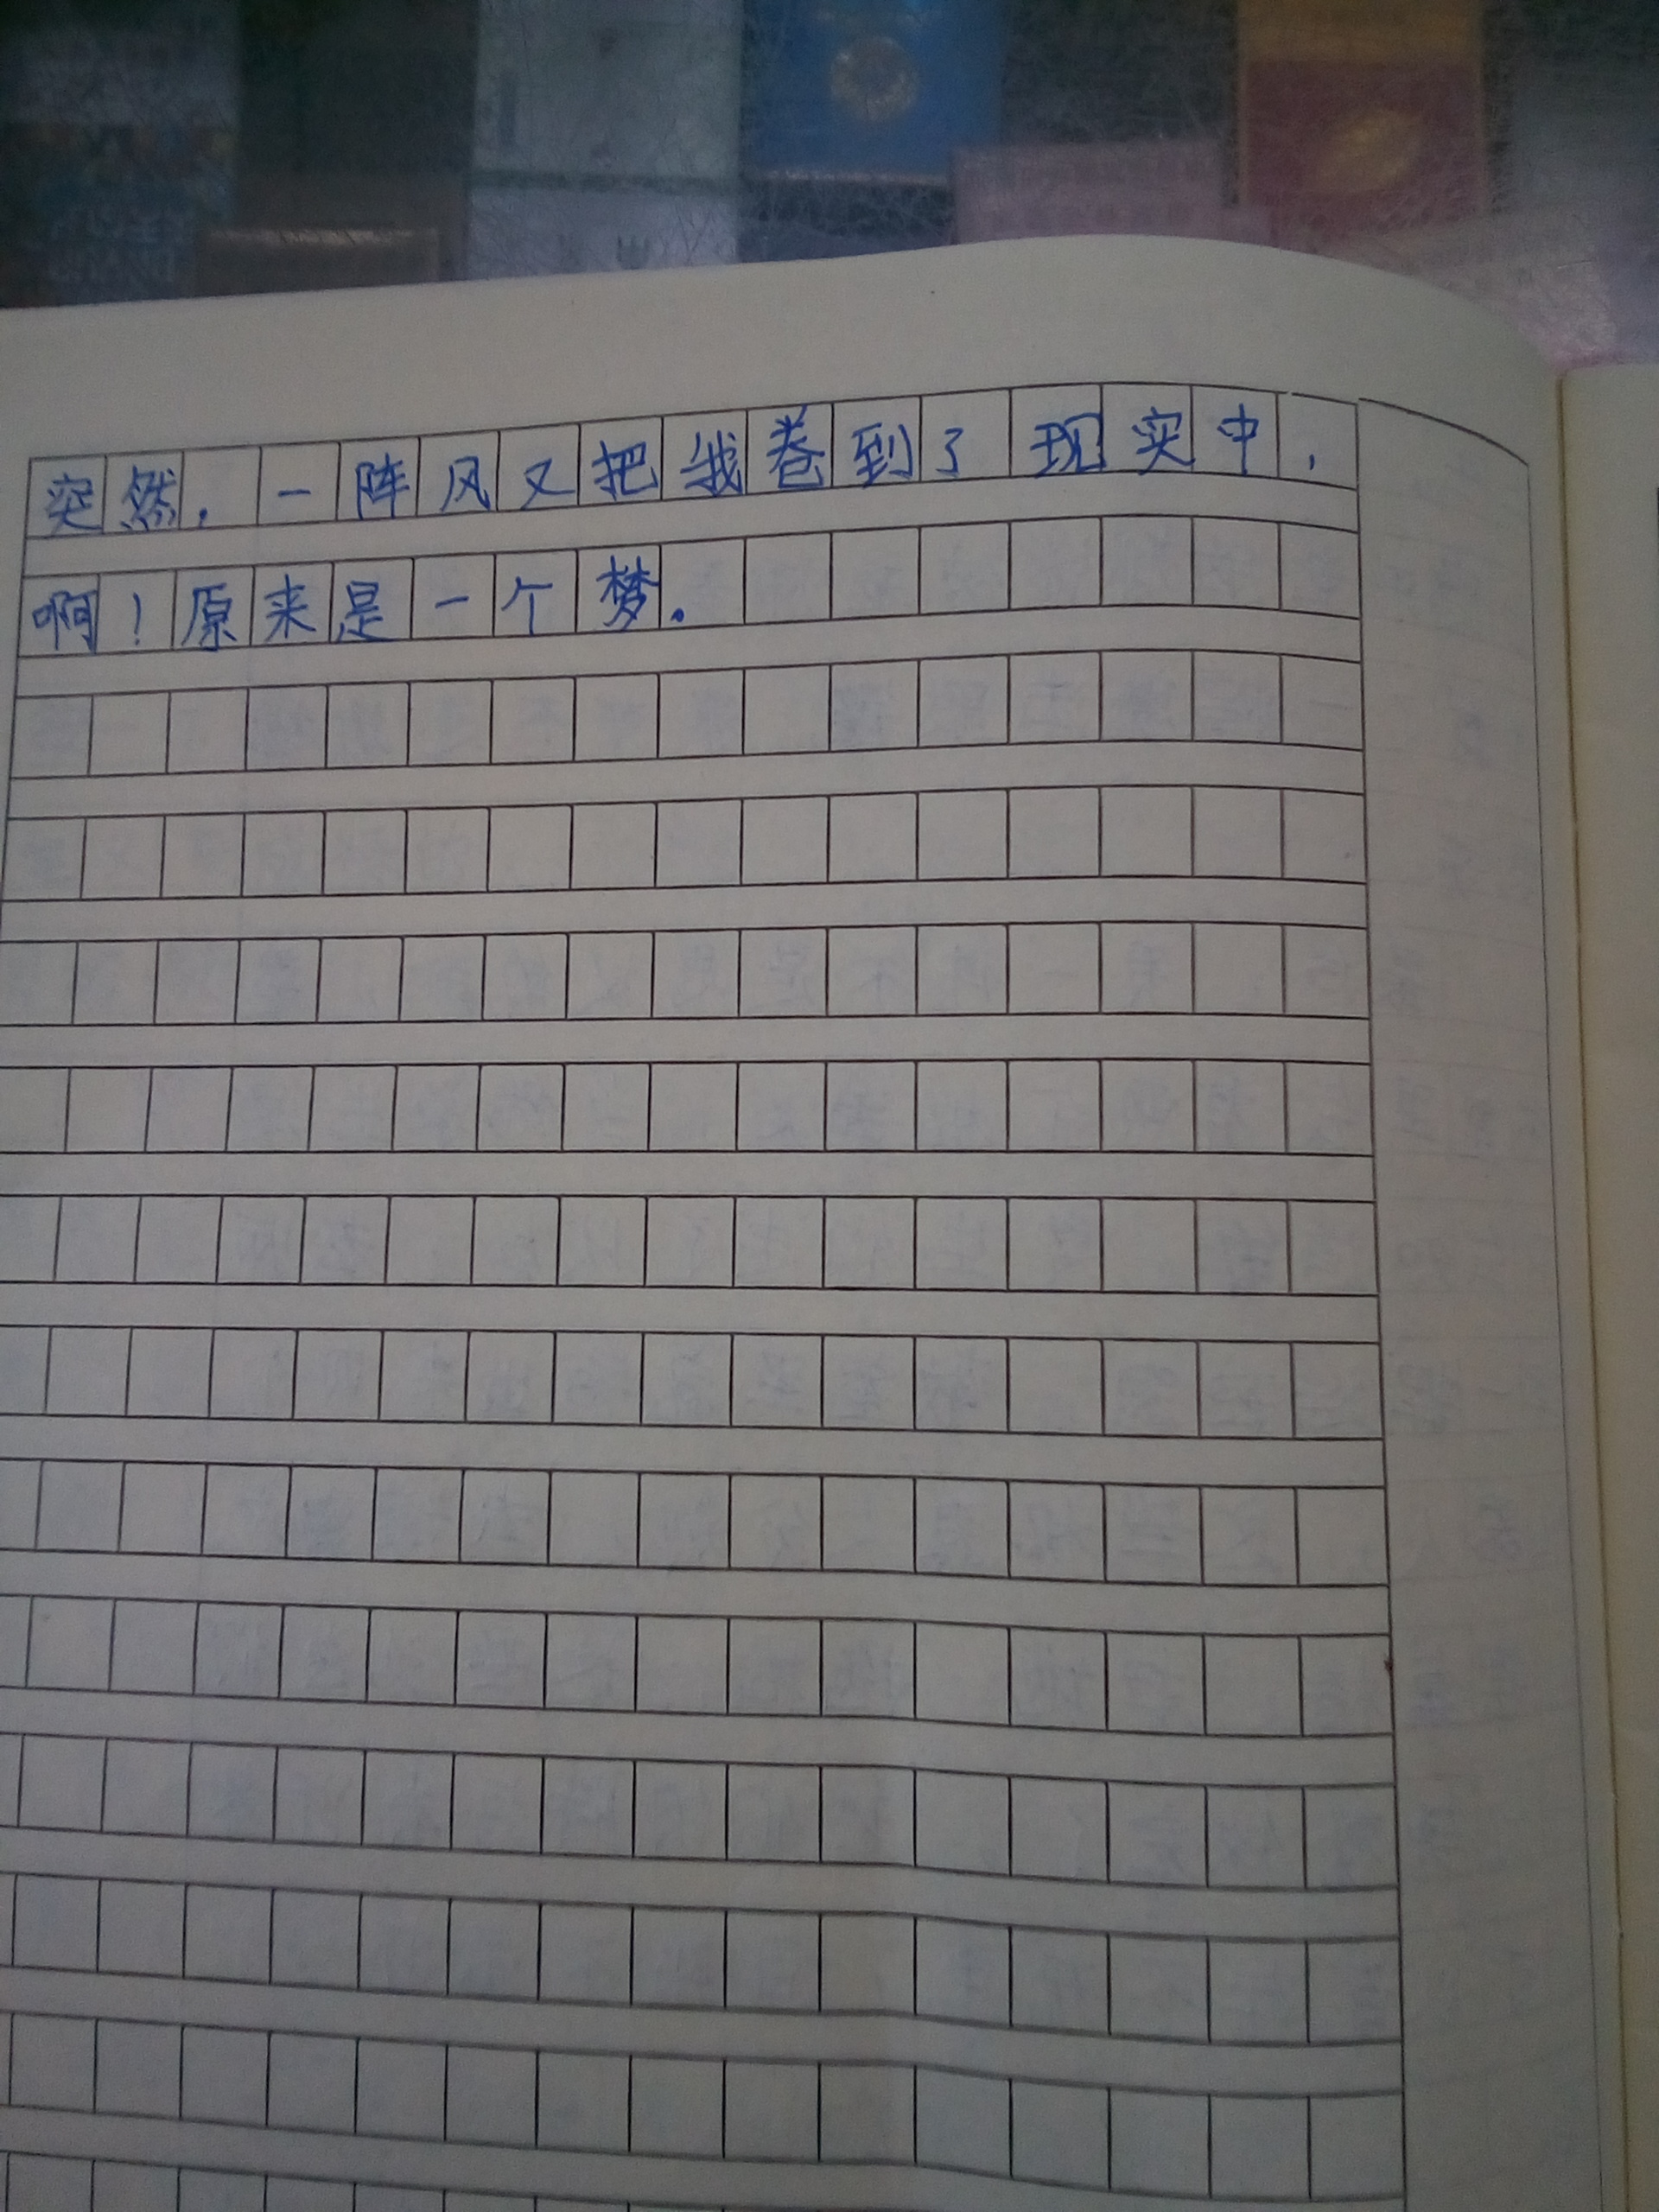 突然，一阵风又把我卷到了现实中，
啊！原来是一个梦。